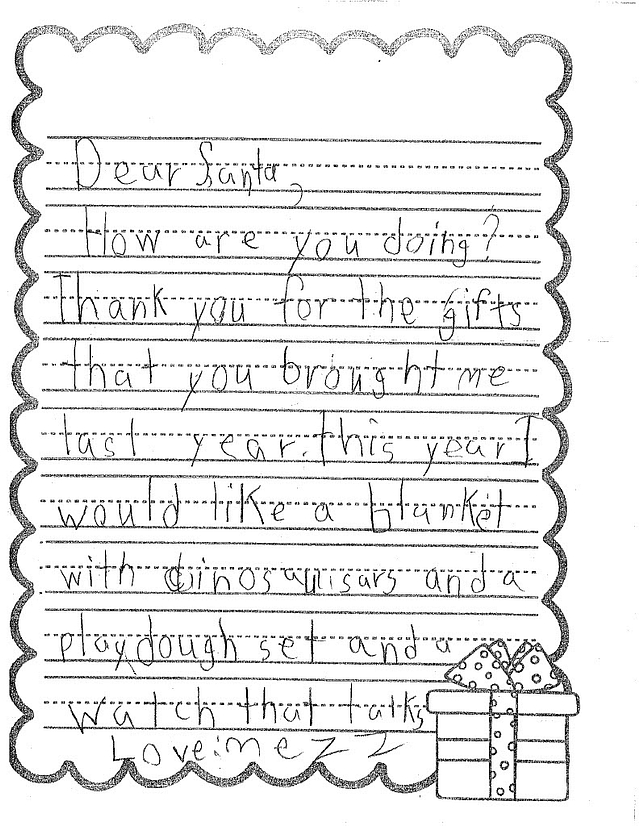 Dear Santa,
How are you doing?
Thank you for the gifts
that you brought me
last year. this year I
would like a blanket
with dinosauisars and a
playdough set and a
watch that talks
Love:mezz